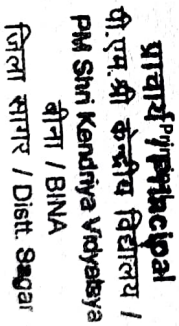 प्राचार्य/Principal
पी.एम.श्री केन्द्रीय विद्यालय /
PM Shri Kendriya Vidyalaya
बीना / BINA
जिला सागर / Distt. Sagar